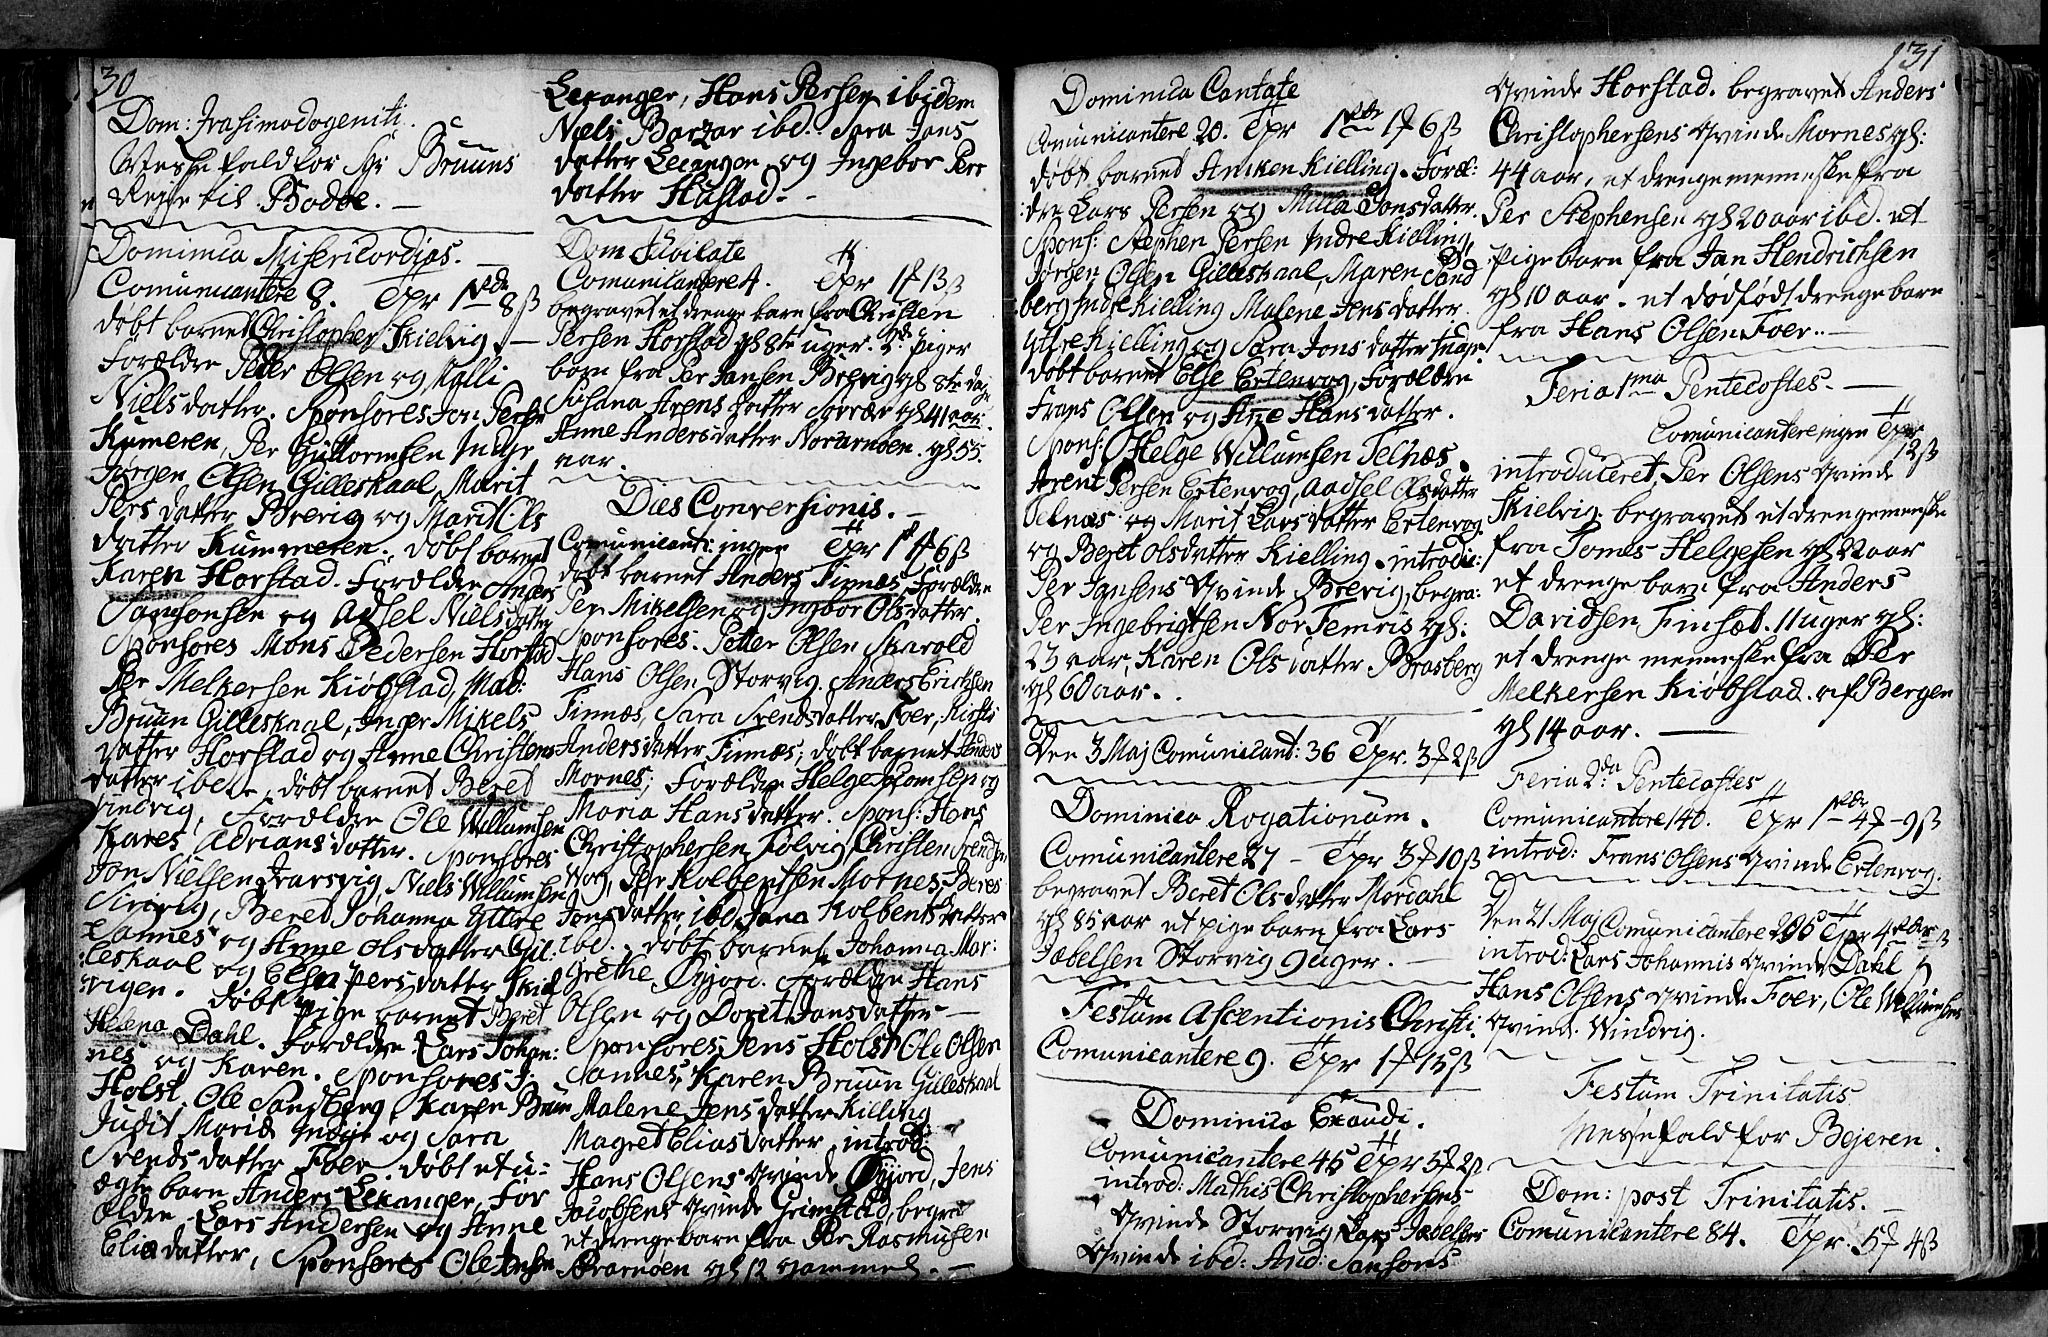 130
Dom: Qvasimodogeniti.
Messefald for Hr Bruuns
Reyse til Bodöe. —
Dominica Misericordias. —
Comunicantere 8. Tpr 1 8ß
döbt barnet Christopher Skielvig. —
Forældre Peter Olsen og Malli
Nielsdatter. Sponsores Jon Persen
Kumeren, Per Guttormsen Indyr
Jörgen Olsen Gilleskaal, Marit
Persdatter Brevig og Marit Ols
datter Kummeren. döbt barnet
Karen Horstad. Forældre Anders
Samsonsen og Adsel Nielsdatter
Sponsores Mons Pedersen Horstad
Per Melkersen Kiöbstad, Mad:
Bruun Gilleskaal, Inger Mikels
datter Horstad og Anne Christens
datter ibd. döbt barnet Beret
Vindvig, Forældre Ole Willumsen
Kares Adriansdatter. Sponsores
Jon Nielsen Qvarsvig, Niels Willumsen
Beret Johanna Yttre
Sannes og Anne Olsdatter Gil:
leskaal og Elsa Persdatter Skiel
vigen. döbt pige barnet Beret
Helena Dahl. Forældre Lars Johan:
nes og Karen. Sponsores J:
Holst, Ole Sandberg, Karen Bruun
Judit Mariæ Indyr og Sara
Svendsdatter Foer. döbt et u:
ægte barn Anders Levanger, For
ældre Lars Andersen og Anne
Eliadatter, Sponsores Ole Jensen
Levanger, Hans Persen ibidem
Niels Barzar ibd. Sara Jons
datter Levanger og Ingebor Pers
datter Hustad. —
Dom Jubilate
Comunicantere 4. Tpr 1 # 13ß
begravet et drenge barn fra Christen
Persen Horstad gl. 8te uger. 2de piger
börn fra Per Jansen Brevig gl. 8te dage
Susana Arensdatter Sörvær gl. 41 aar.
Anne Andersdatter Nordarnöen. gl. 55.
aar.
Dies Conversionis. —
Comunicant: ingen Tpr 1 # 6ß
döbt barnet Anders Finnæs, Forældre
Per Mikelsen og Ingbor Olsdatter.
Sponsores. Petter Olsen Skavold
Hans Olsen Storvig. Anders Erichsen
Finnæs, Sara Svendsdatter Foer, Kirsti
Andersdatter Finnæs; döbt barnet Anders
Mornes; Forældre Helge Tomsen og
Maria Hansdatter. Spons: Hans
Christophersen Sölvig, Christen Svendsen
Vog, Per Kolbentsen Mornes, Beres
Jonsdatter ibd. Jana Kolbentsdatter
ibd. döbt barnet Johanna Mar:
grethe Öyjord. Forældre Hans
Olsen og Dorit Jansdatter —
Sponsores Jens Holst, Ole Olsen
Sannes, Karen Bruun Gilleskaal
Malene Jensdatter Killing
Magret Eliasdatter. introd:
Hans Olsens Qvinde Öyjord, Jens
Jacobsens Qvinde Grimstad, begra:
et drenge barn fra Per Rasmusen
gl. 12 gammel. —
131
Dominica Cantate
Comunicantere 20. Tpr 1 1 # 6ß
döbt barnet Anken Kielling. Foræl:
dre Lars Persen og Milla Jonsdatter.
Spons: Stephen Persen Indre Kielling,
Jörgen Olsen Gilleskaal, Maren Sand
berg Indre Kielling Malene Jensdatter
Yttre Kielling og Sara Jonsdatter Indyr
döbt barnet Else Ertenvog, Forældre
Frans Olsen og Ane Hansdatter.
Spons: Helge Willumsen Telnæs.
Arent Persen Ertenvog, Aadsel Olsdatter
Telnæs og Marit Larsdatter Ertenvog
og Beret Olsdatter Kielling. introdu:
Per Jansens Qvinde Brevig, begra:
Per Ingebrigtsen Nor Femris gl:
23 aar, Karen Olsdatter Brasberg
gl. 60 aar.
Den 3 Maj Comunicant: 36 Tpr. 3 # 2ß
Dominica Rogationum.
Comunicantere 27 — Tpr 3 # 10ß
begravet Beret Olsdatter Mördahl
gl. 85 aar et pige barn fra Lars
Jæbelsen Storvig 9 uger. —
Festum Ascentionis Christi
Comunicantere 9. Tpr 1 # 15ß
Dominica Exaudi.
Comunicantere 45 Tpr 3 # 2ß
introd: Mathis Christophersens
Qvinde Storvig, Lars Jæbelsens
Qvinde ibd: And: Samsons
Qvinde Horstad. begravet Anders
Christophersens Qvinde Mornes gl:
44 aar, et drengemenneske fra
Per Stephensen gl. 20 aar ibd. et
Pige barn fra Jan Hendrichsen
gl. 10 aar. et dödfödt drenge barn
fra Hans Olsen Foer. —
Feria 1ma Pentecostes. —
Comunicantere ingen Tpr
12ß
introduceret, Per Olsens Qvinde
Skielvig. begravet et drengemenske
fra Tomes Helgesen gl. 22 aar
et drenge barn fra Anders
Davidsen Finsæt. 11 uger gl:
et drenge menneske fra Per
Melkersen Kiöbstad. af Bergen
gl. 14 aar. —
Feria 2da Pentecostes
Comunicantere 140. Tpr 1 4 # — 9ß
introd: Frans Olsens Qvinde Ertenvog.
Den 21 Maj Comunicantere Tpr 4
introd: Lars Johannis Qvinde Dahl
Hans Olsens Qvinde Foer, Ole Willumsens
Qvinde Windvig.
Festum Trinitatis
Messefald for Bejeren.
Dom: post Trinitatis. —
Comunicantere 84. Tpr: 5 # 4ß